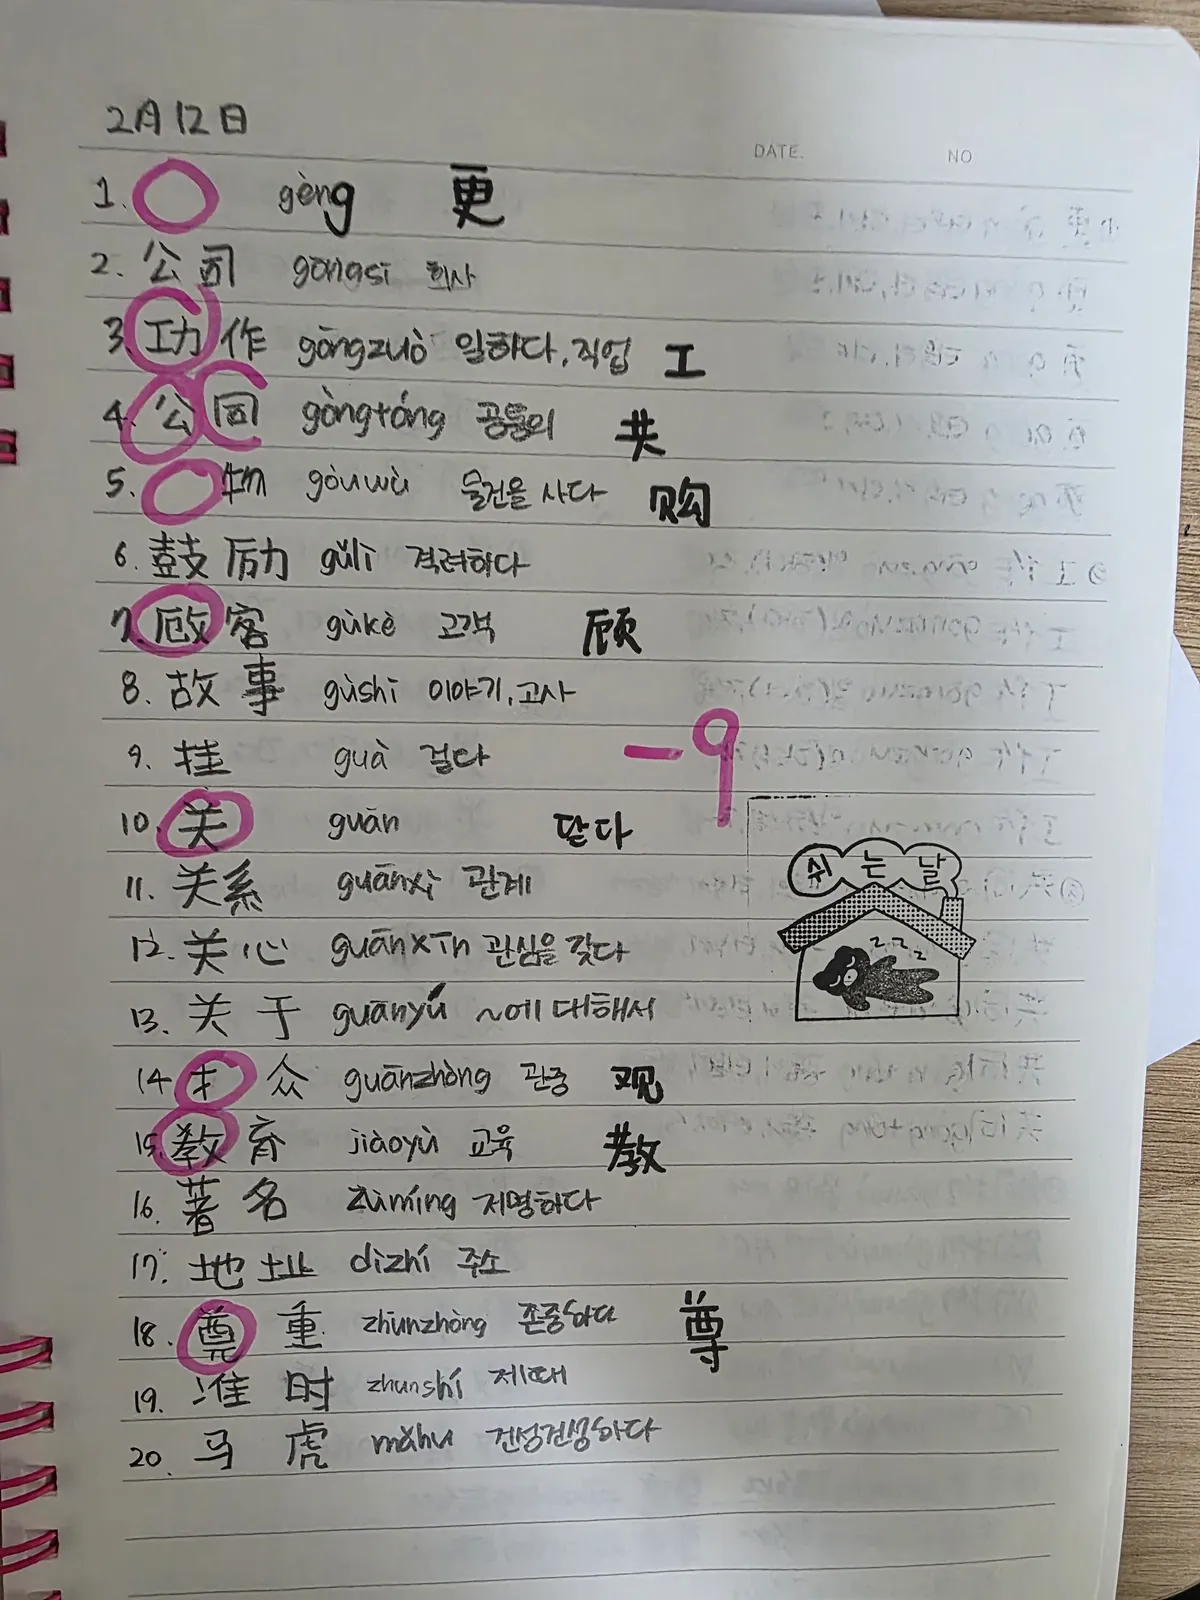 2月12日
DATE. NO
1. gèng 更
2. 公司 gōngsī 회사
3. 功作 gōngzuò 일하다, 직업 工
4. 公同 gòngtóng 공통의 共
5. 物 gòuwù 물건을 사다 购
6. 鼓励 gǔlì 격려하다
7. 客 gùkè 고객 顾
8. 故事 gùshi 이야기, 고사
9. 挂 guà 걸다
-9
10. 关 guān 닫다
11. 关系 guānxì 관계
쉬는날
12. 关心 guānxīn 관심을 갖다
zzz
13. 关于 guānyú ~에 대해서
14. 扌众 guānzhòng 관중 观
15. 教育 jiàoyù 교육 教
16. 著名 zùmíng 저명하다
17. 地址 dìzhí 주소
18. 重 zhūnzhòng 존중하다 尊
19. 准时 zhunshí 제때
20. 马虎 mǎhu 건성건성하다